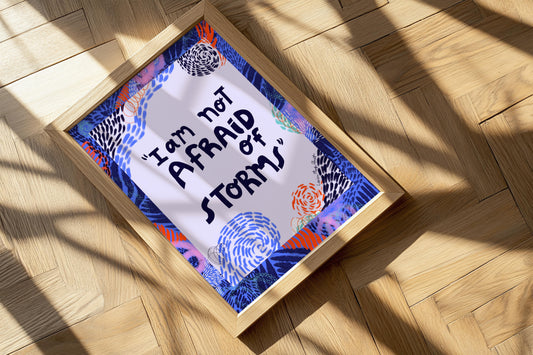 "I am not
AFRAID of
STORMS"